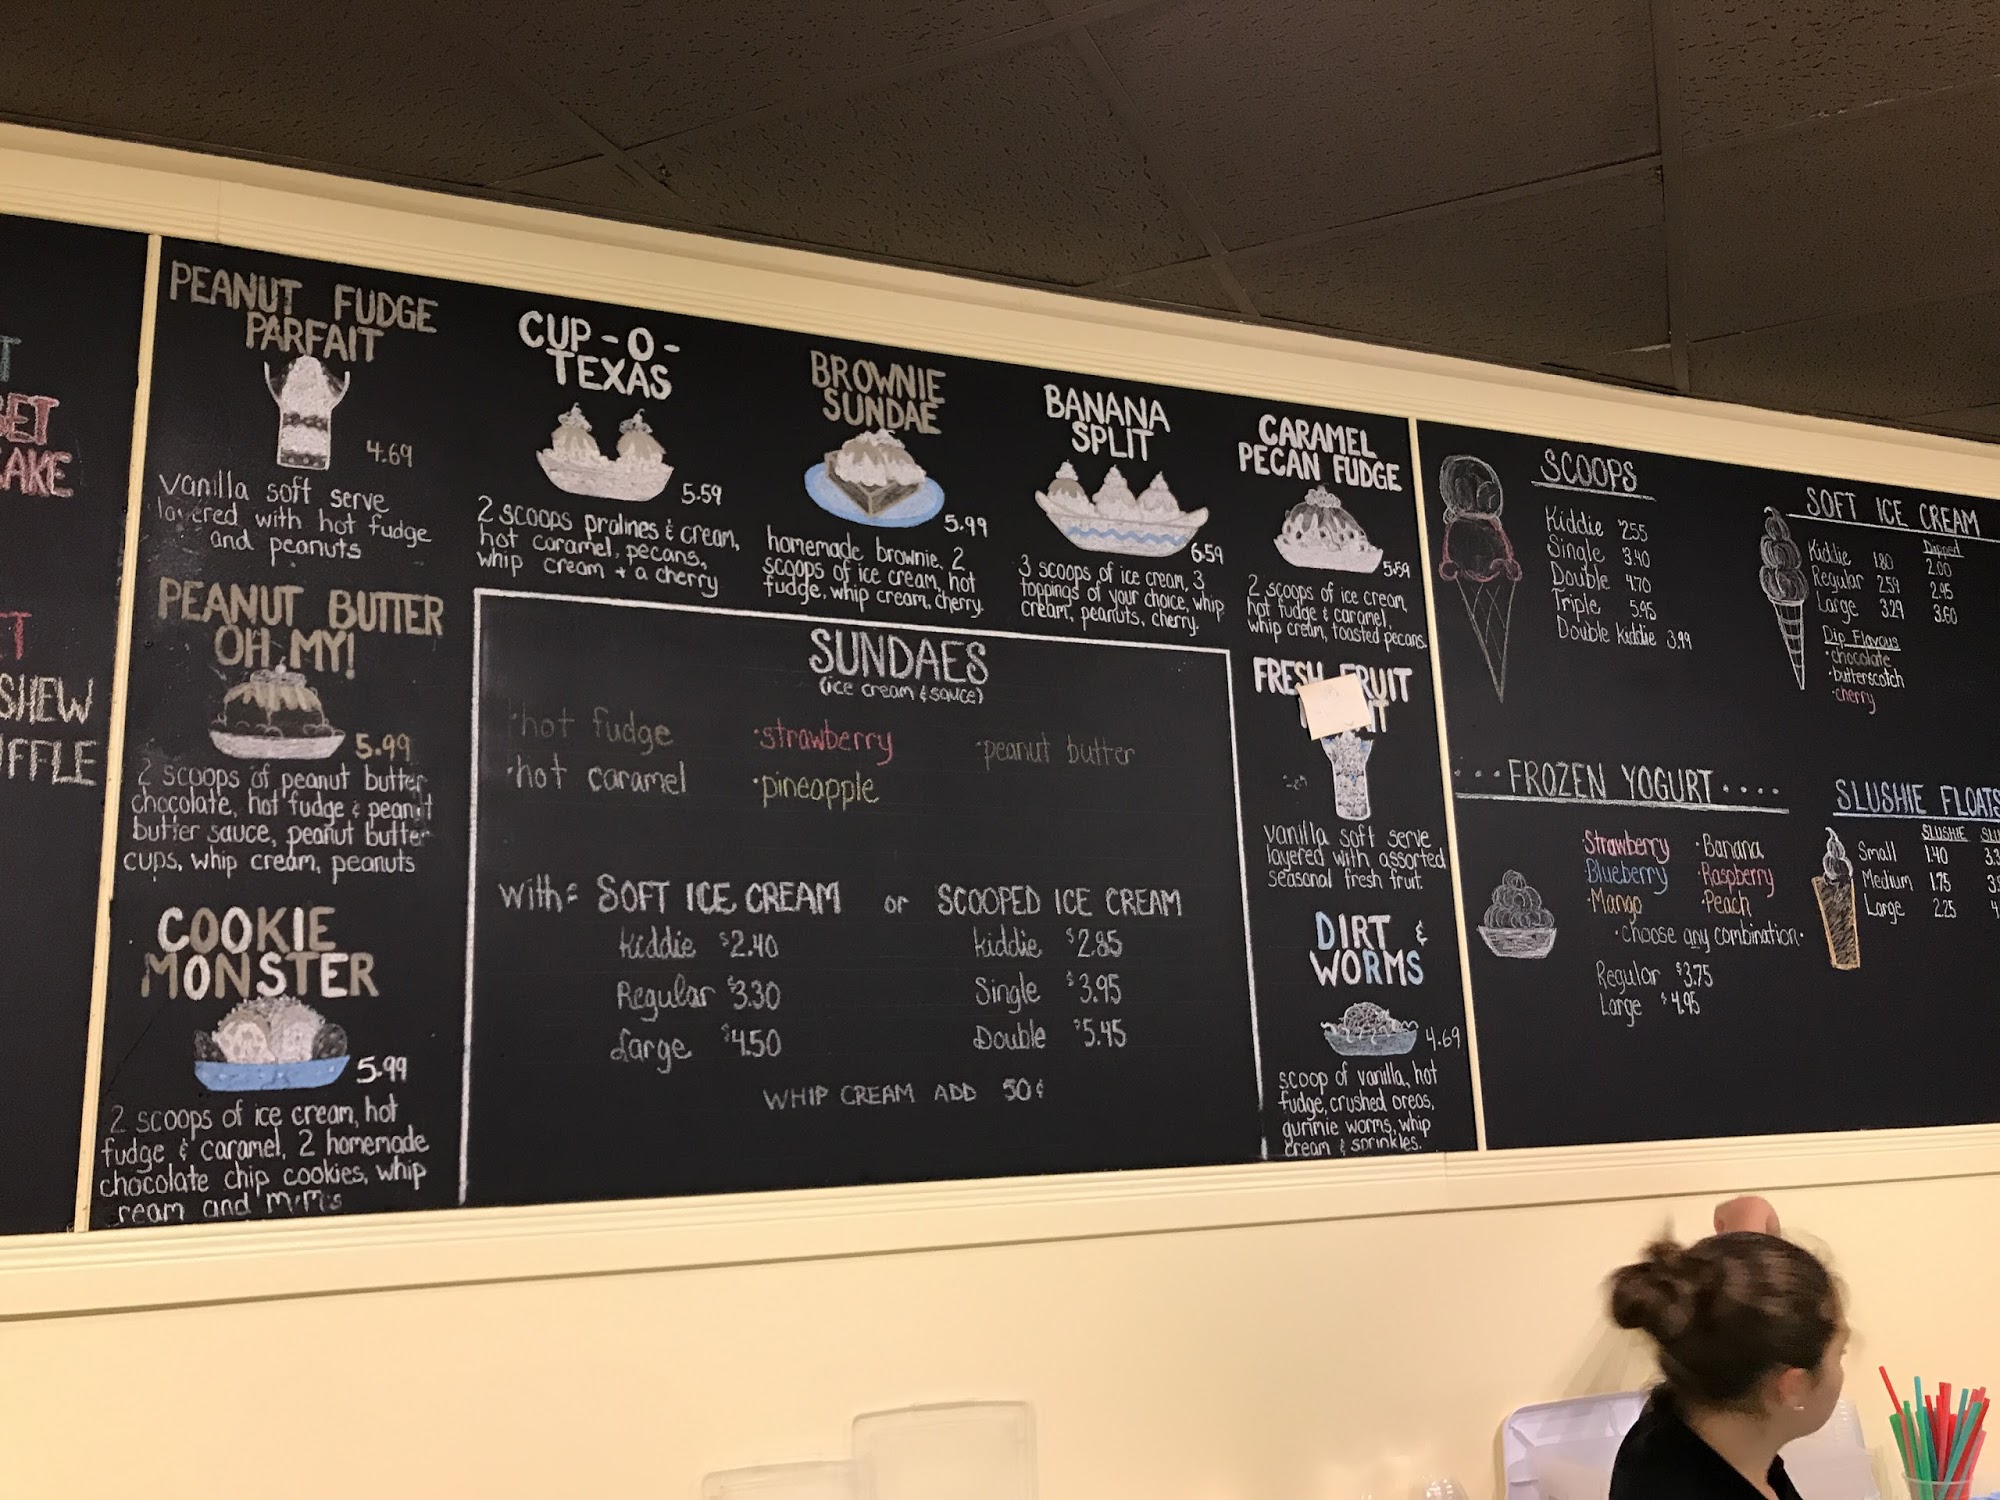 BET
CAKE
SHEW
FFLE
PEANUT FUDGE
PARFAIT
4.69
vanilla soft serve
layered with hot fudge
and peanuts
PEANUT BUTTER
OH MY!
5.99
2 scoops of peanut butter
chocolate, hot fudge & peanut
butter sauce, peanut butter
cups, whip cream, peanuts
COOKIE
MONSTER
5.99
2 scoops of ice cream, hot
fudge & caramel, 2 homemade
chocolate chip cookies, whip
ream and M&M's
CUP-O-
TEXAS
5.59
2 scoops pralines & cream,
hot caramel, pecans,
whip cream + a cherry
BROWNIE
SUNDAE
5.99
homemade brownie, 2
scoops of ice cream, hot
fudge, whip cream, cherry.
BANANA
SPLIT
6.59
3 scoops of ice cream, 3
toppings of your choice, whip
cream, peanuts, cherry.
CARAMEL
PECAN FUDGE
5.59
2 scoops of ice cream,
hot fudge & caramel,
whip cream, toasted pecans.
SUNDAES
(ice cream & sauce)
·hot fudge ·strawberry ·peanut butter
·hot caramel ·pineapple
with: SOFT ICE CREAM or SCOOPED ICE CREAM
Kiddie $2.40 Kiddie $2.85
Regular $3.30 Single $3.95
Large $4.50 Double $5.45
WHIP CREAM ADD 50¢
FRESH FRUIT
vanilla soft serve
layered with assorted
seasonal fresh fruit.
DIRT &
WORMS
4.69
scoop of vanilla, hot
fudge, crushed oreos,
gummie worms, whip
cream & sprinkles.
SCOOPS
Kiddie $2.55
Single 3.40
Double 4.70
Triple 5.45
Double kiddie 3.99
SOFT ICE CREAM
Dipped
Kiddie 1.80 2.00
Regular 2.59 2.95
Large 3.29 3.60
Dip Flavours
·chocolate
·butterscotch
·cherry
····FROZEN YOGURT····
Strawberry ·Banana
·Blueberry ·Raspberry
·Mango ·Peach
·choose any combination·
Regular $3.75
Large $4.95
SLUSHIE FLOATS
SLUSHIE
Small 1.40
Medium 1.75
Large 2.25